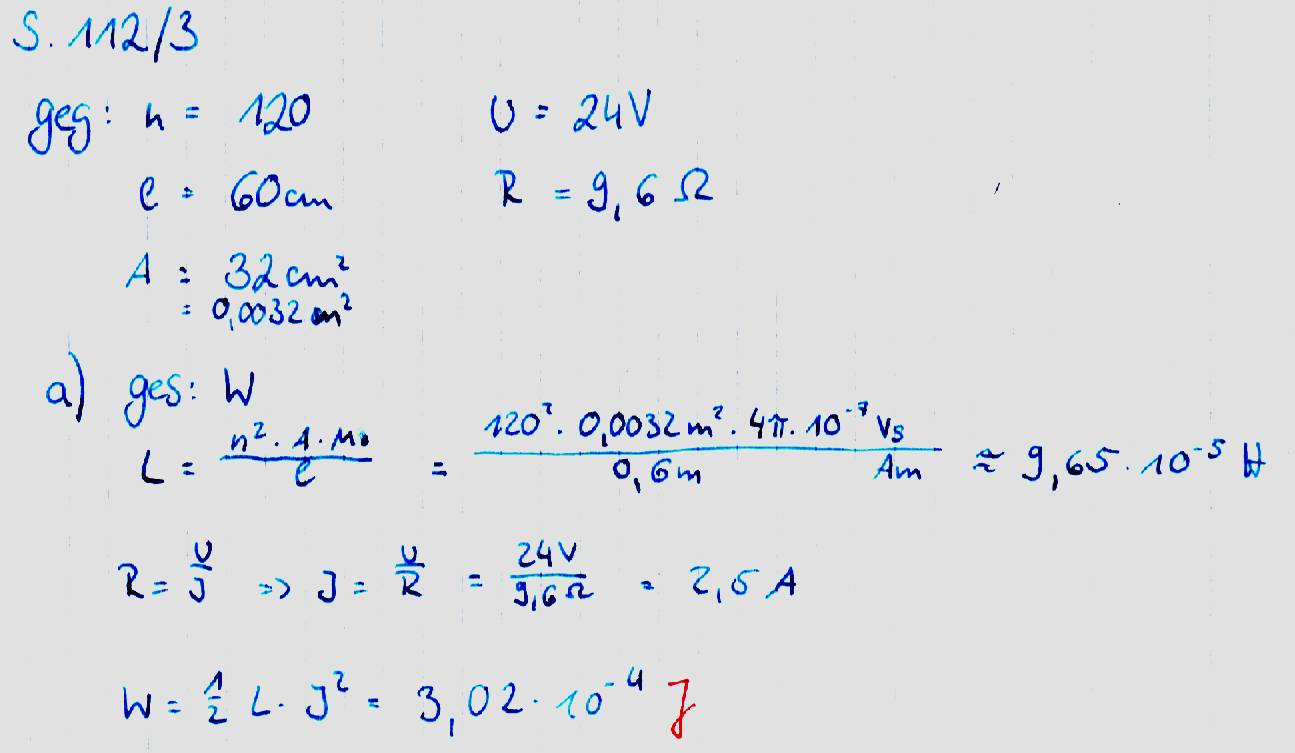 S. 112/3
geg: n = 120 U = 24V
l = 60cm R = 9,6 Ω
A = 32cm²
= 0,0032m²
a) ges: W
L = n² · A · μ₀ / l = 120² · 0,0032m² · 4π · 10⁻⁷ Vs / 0,6m Am ≈ 9,65 · 10⁻⁵ H
R = U/I => I = U/R = 24V/9,6Ω = 2,5 A
W = 1/2 L · I² = 3,02 · 10⁻⁴ J